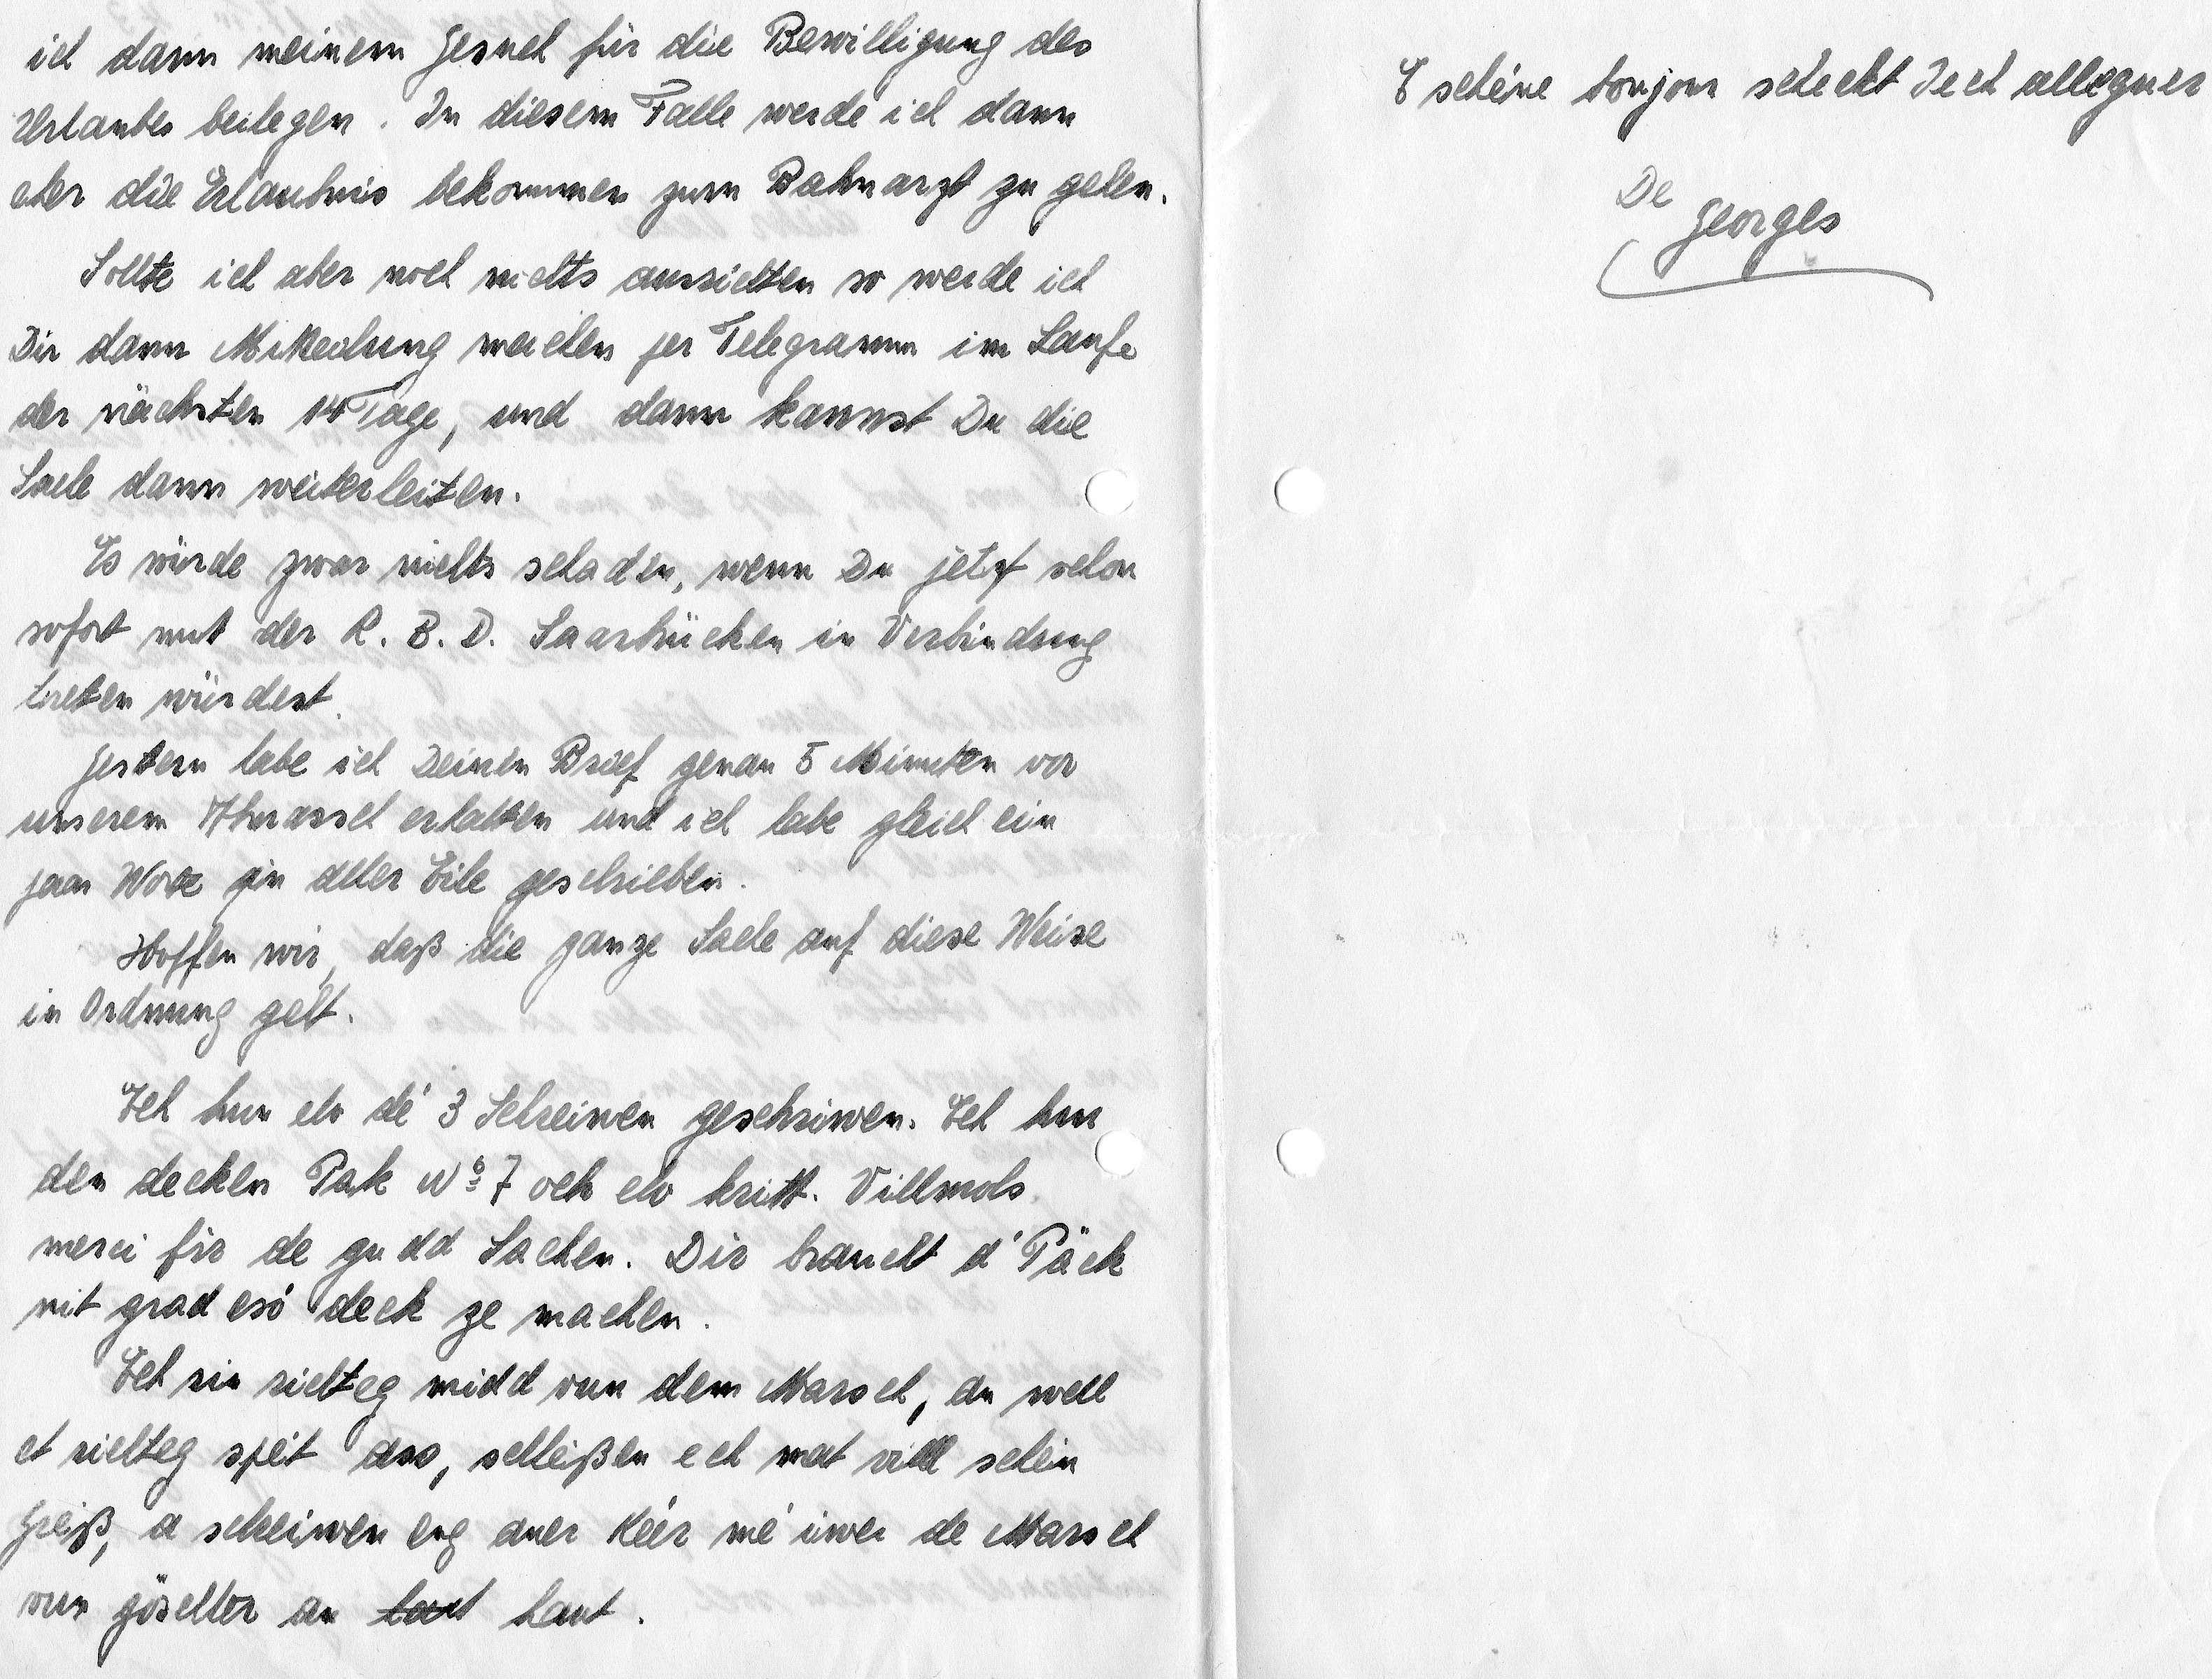 ich dann meinem Gesuch für die Bewilligung des
Urlaubes beilegen. In diesem Falle werde ich dann
eher die Erlaubnis bekommen zum Bahnarzt zu gehen.
Sollte ich aber noch nichts ausrichten so werde ich
Dir dann Mitteilung machen per Telegramm im Laufe
der nächsten 14 Tage, und dann kannst Du die
Sache dann weiterleiten.
Es würde zwar nichts schaden, wenn Du jetzt schon
sofort mit der R. B. D. Saarbrücken in Verbindung
treten würdest.
Gestern habe ich Deinen Brief genau 5 Minuten vor
unserem Abmarsch erhalten und ich habe gleich ein
paar Worte in aller Eile geschrieben.
Hoffen wir, daß die ganze Sache auf diese Weise
in Ordnung geht.
Ech hun elo dé 3 Schreiwen geschriwen. Ech hun
den decken Pak No 7 och elo kritt. Villmols
merci fir de gudd Sachen. Dir braucht d' Päck
nit grad esó deck ze machen.
Ech sin richteg midd vun dem Marsch, an well
et richteg spéit ass, schleißen ech mat vill schéin
Gréiß, a schreiwen eng aner Kéer mé iwer de Marsch
vun göschter an haut.
E schéine bonjour schéckt Iech alleguer
De Georges